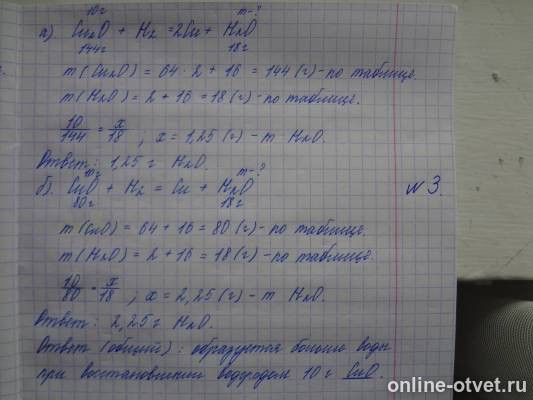 10г m-?
а). Cu₂O + H₂ = 2Cu + H₂O
144г 18г
m(Cu₂O) = 64 · 2 + 16 = 144 (г) - по таблице.
m(H₂O) = 2 + 16 = 18 (г) - по таблице.
10/144 = x/18 ; x = 1,25 (г) - m H₂O.
Ответ: 1,25 г H₂O.
10г m-?
б). CuO + H₂ = Cu + H₂O
80г 18г
№3.
m(CuO) = 64 + 16 = 80 (г) - по таблице.
m(H₂O) = 2 + 16 = 18 (г) - по таблице.
10/80 = x/18 ; x = 2,25 (г) - m H₂O.
Ответ: 2,25 г H₂O.
Ответ (общий): образуется больше воды
при восстановлении водородом 10 г CuO.
online-otvet.ru